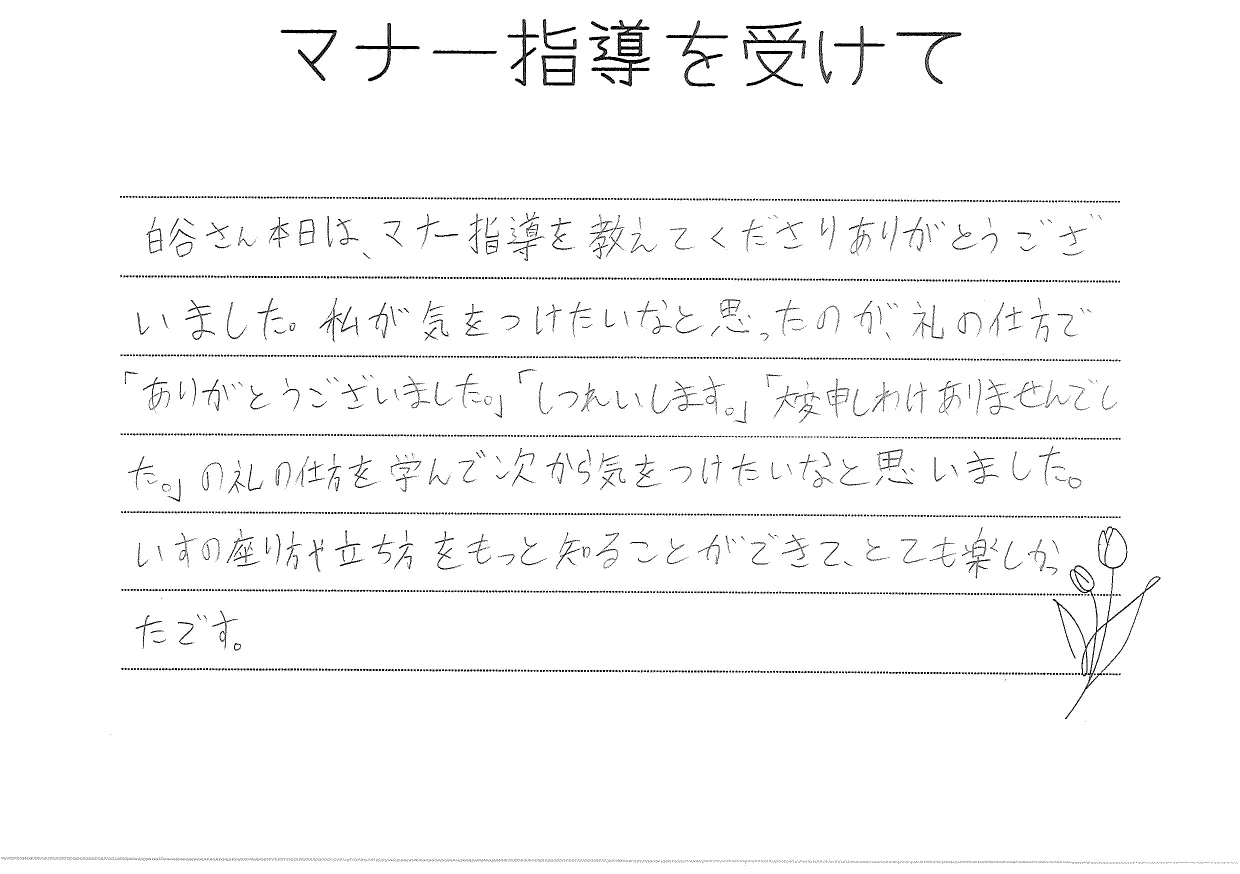 マナー指導を受けて
白谷さん本日は、マナー指導を教えてくださりありがとうござ
いました。私が気をつけたいなと思ったのが、礼の仕方で
「ありがとうございました。」「しつれいします。」「大変申しわけありませんでし
た。」の礼の仕方を学んで次から気をつけたいなと思いました。
いすの座り方や立ち方をもっと知ることができて、とても楽しかっ
たです。